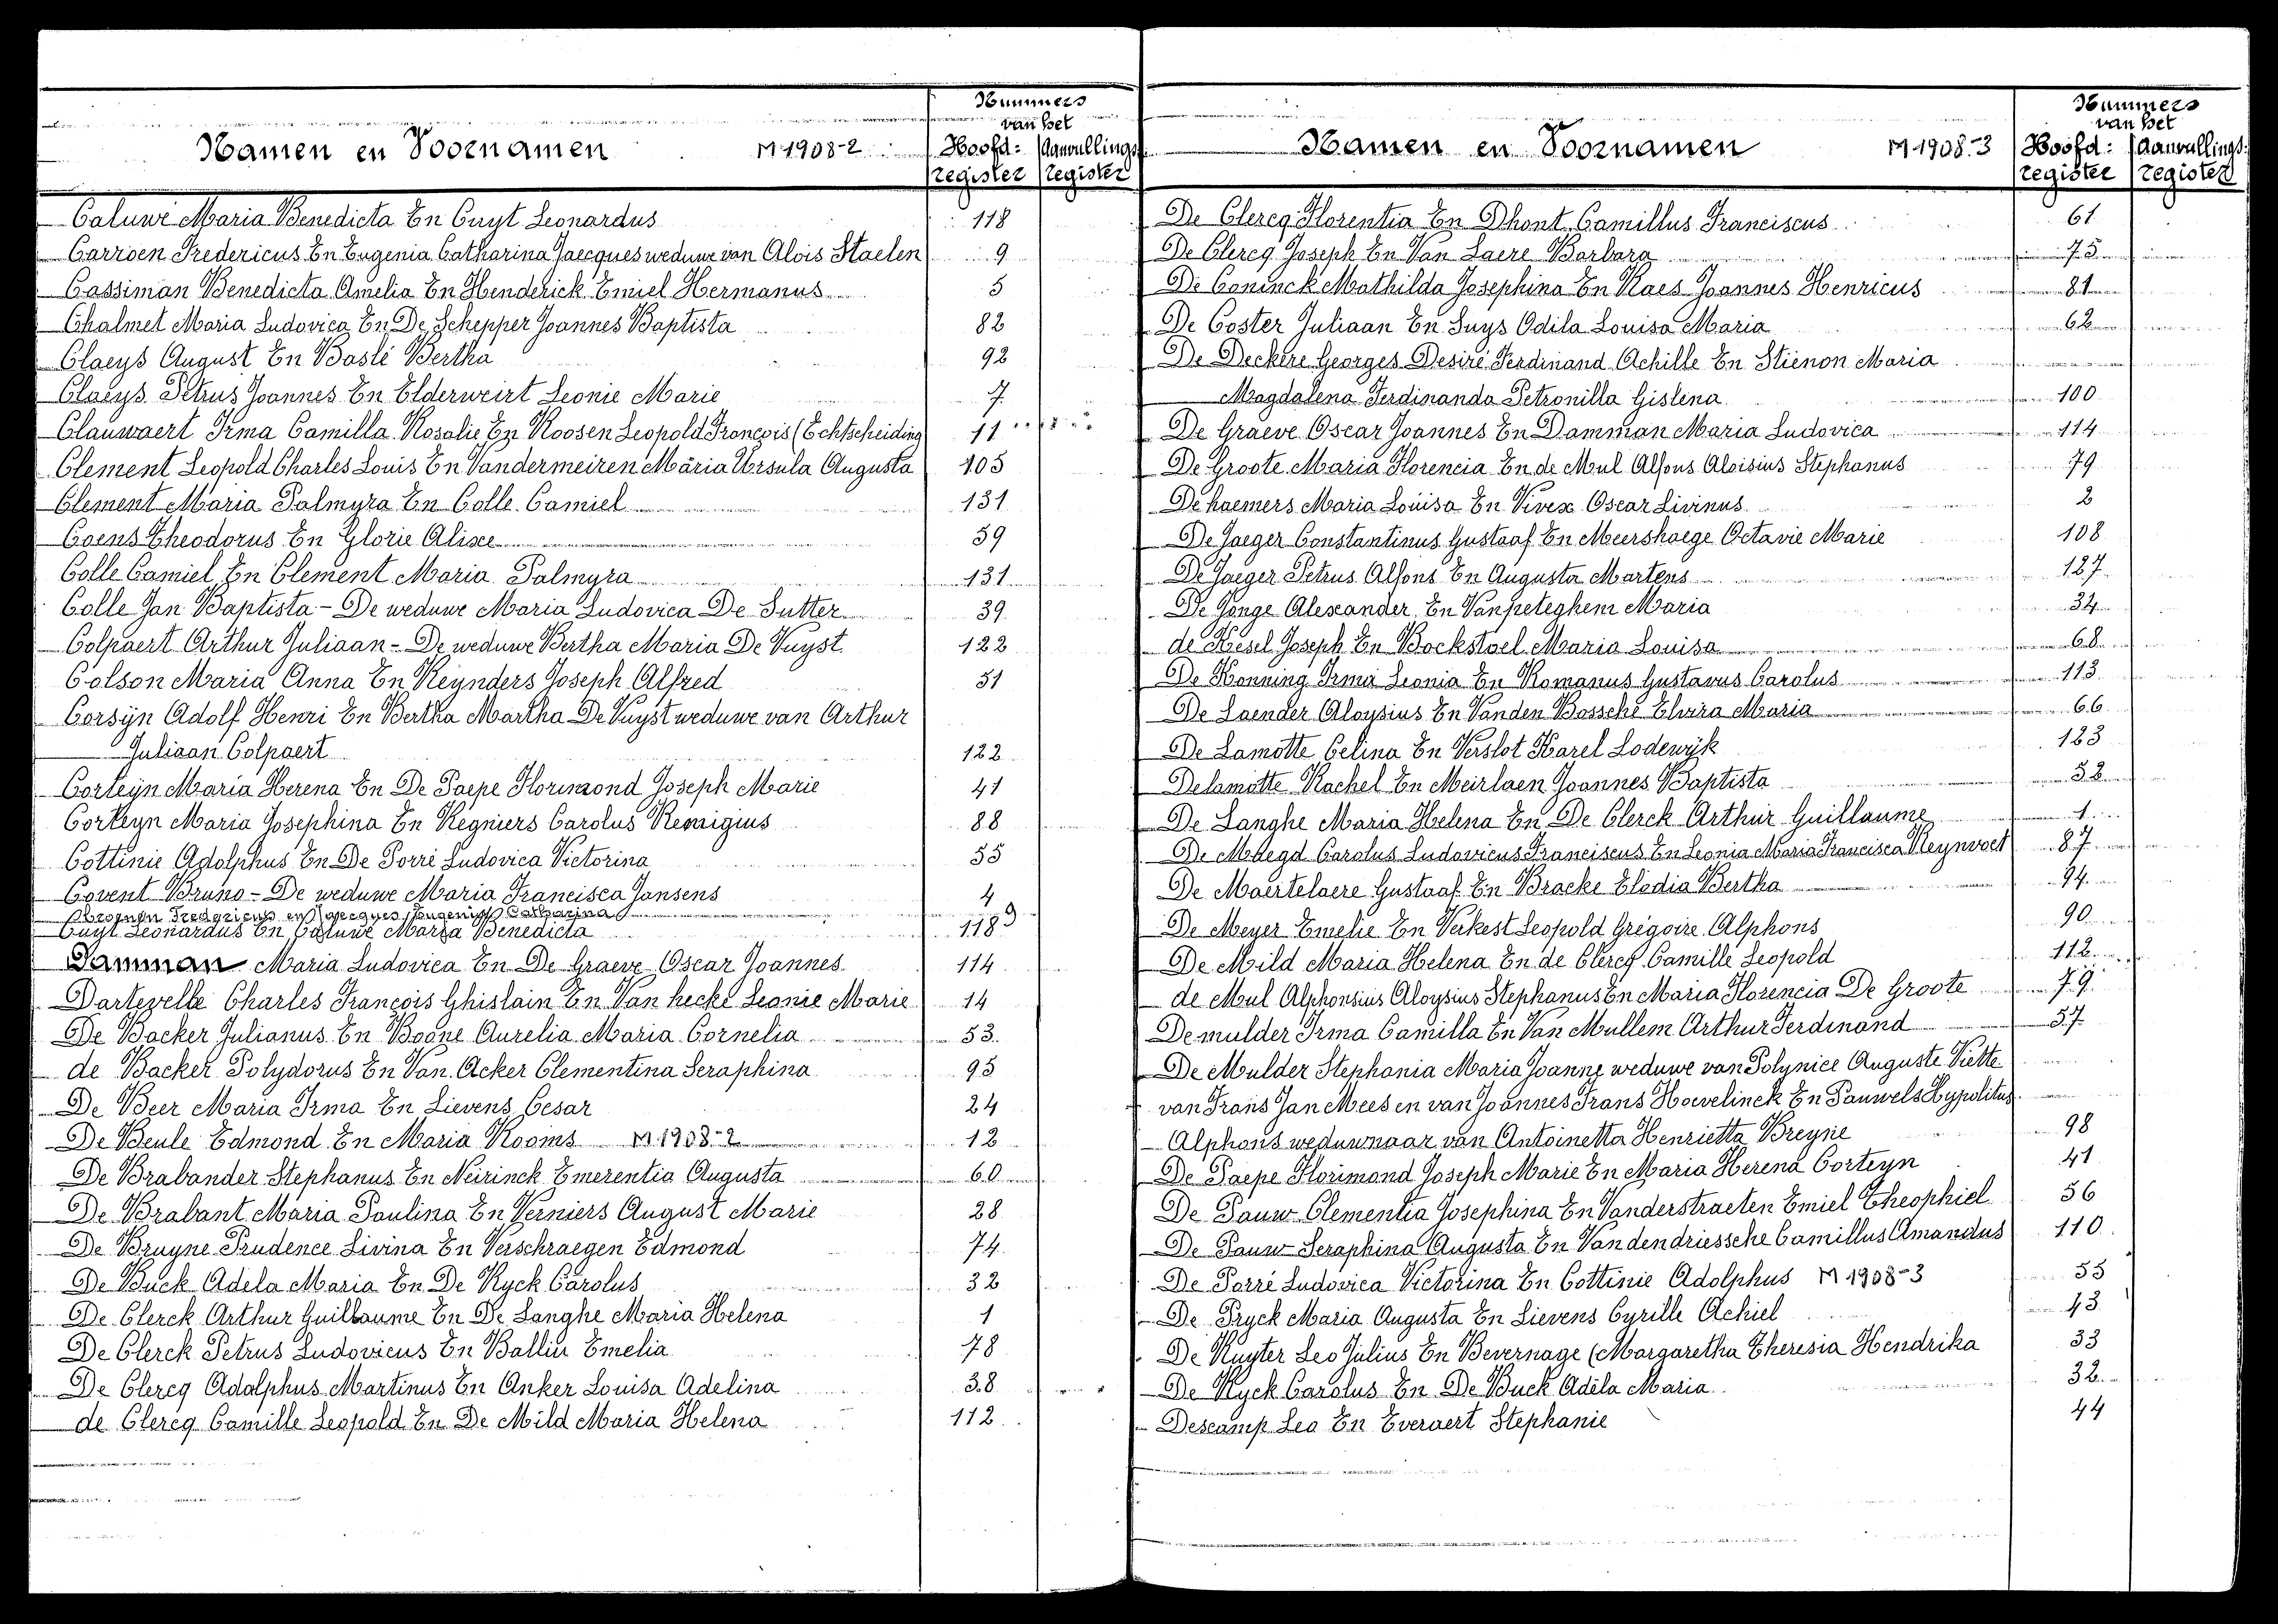 Nummers
van het
Namen en Voornamen M 1908-2 Hoofd: Aanvullings
register register
Caluwe Maria Benedicta En Cuyt Leonardus 118
Carroen Fredericus En Eugenia Catharina Jaecques weduwe van Alois Staelen 9
Cassiman Benedicta Amelia En Henderick Emiel Hermanus 5
Chalmet Maria Ludovica En De Schepper Joannes Baptista 82
Claeys August En Baslé Bertha 92
Claeys Petrus Joannes En Elderweirt Leonie Marie 7
Clauwaert Irma Camilla Rosalie En Roosen Leopold François (Echtscheiding 11
Clement Leopold Charles Louis En Vandermeiren Maria Ursula Augusta 105
Clement Maria Palmyra En Colle Camiel 131
Coens Theodorus En Glorie Alixe 59
Colle Camiel En Clement Maria Palmyra 131
Colle Jan Baptista - De weduwe Maria Ludovica De Sutter 39
Colpaert Arthur Juliaan - De weduwe Bertha Maria De Vuyst 122
Colson Maria Anna En Reynders Joseph Alfred 51
Corsyn Adolf Henri En Bertha Martha De Vuyst weduwe van Arthur
Juliaan Colpaert 122
Corteyn Maria Herena En De Paepe Florimond Joseph Marie 41
Corteyn Maria Josephina En Regniers Carolus Remigius 88
Cottinie Adolphus En De Porré Ludovica Victorina 55
Covent Bruno - De weduwe Maria Francisca Jansens 4
Fredericus en Jaecques Eugenia Catharina 9
Cuyt Leonardus En Caluwe Maria Benedicta 118
Damman Maria Ludovica En De Graeve Oscar Joannes 114
Dartevelle Charles François Ghislain En Van hecke Leonie Marie 14
De Backer Julianus En Boone Aurelia Maria Cornelia 53
de Backer Polydorus En Van Acker Clementina Seraphina 95
De Beer Maria Irma En Lievens Cesar 24
De Beule Edmond En Maria Rooms M 1908-2 12
De Brabander Stephanus En Neirinck Emerentia Augusta 60
De Brabant Maria Paulina En Verniers August Marie 28
De Bruyne Prudence Livina En Verschraegen Edmond 74
De Buck Adela Maria En De Ryck Carolus 32
De Clerck Arthur Guillaume En De Langhe Maria Helena 1
De Clerck Petrus Ludovicus En Balliu Emelia 78
De Clercq Adolphus Martinus En Anker Louisa Adelina 38
de Clercq Camille Leopold En De Mild Maria Helena 112
Nummers
van het
Namen en Voornamen M 1908-3 Hoofd: Aanvullings
register register
De Clercq Florentia En Dhont Camillus Franciscus 61
De Clercq Joseph En Van Laere Barbara 75
De Coninck Mathilda Josephina En Raes Joannes Henricus 81
De Coster Juliaan En Suys Odila Louisa Maria 62
De Deckere Georges Desiré Ferdinand Achille En Stienon Maria
Magdalena Ferdinanda Petronilla Gislena 100
De Graeve Oscar Joannes En Damman Maria Ludovica 114
De Groote Maria Florencia En de Mul Alfons Aloisius Stephanus 79
De haemers Maria Louisa En Vivex Oscar Livinus 2
De Jaeger Constantinus Gustaaf En Meershaege Octavie Marie 108
De Jaeger Petrus Alfons En Augusta Martens 127
De Jonge Alexander En Vanpeteghem Maria 34
de Kesel Joseph En Bockstael Maria Louisa 68
De Konning Irma Leonia En Romanus Gustavus Carolus 113
De Laender Aloysius En Vanden Bossche Elvira Maria 66
De Lamotte Celina En Verslot Karel Lodewijk 123
Delamotte Rachel En Meirlaen Joannes Baptista 52
De Langhe Maria Helena En De Clerck Arthur Guillaume 1
De Maegd Carolus Ludovicus Franciscus En Leonia Maria Francisca Reynvoet 87
De Maertelaere Gustaaf En Bracke Elodia Bertha 94
De Meyer Emelie En Verkest Leopold Grégoire Alphons 90
De Mild Maria Helena En de Clercq Camille Leopold 112
de Mul Alphonsius Aloysius Stephanus En Maria Florencia De Groote 79
De mulder Irma Camilla En Van Mullem Arthur Ferdinand 57
De Mulder Stephania Maria Joanne weduwe van Polynice Auguste Viette
van Frans Jan Mees en van Joannes Frans Hoevelinck En Pauwels Hypolitus
Alphons weduwnaar van Antoinetta Henrietta Breyne 98
De Paepe Florimond Joseph Marie En Maria Herena Corteyn 41
De Pauw Clementia Josephina En Vanderstraeten Emiel Theophiel 56
De Pauw Seraphina Augusta En Vandendriessche Camillus Amandus 110
De Porré Ludovica Victorina En Cottinie Adolphus M 1908-3 55
De Pryck Maria Augusta En Lievens Cyrille Achiel 43
De Ruyter Leo Julius En Bevernage (Margaretha Theresia Hendrika 33
De Ryck Carolus En De Buck Adéla Maria 32
Descamp Lea En Everaert Stephanie 44